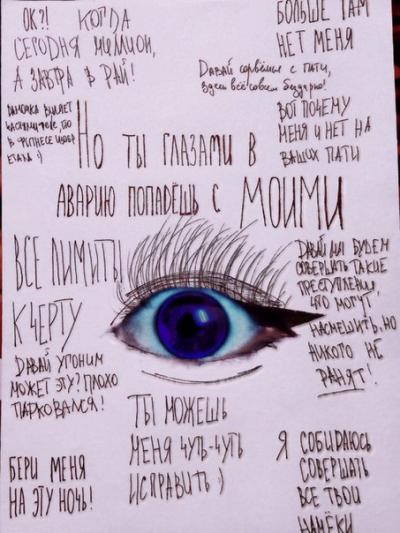 ОК?! КОГДА
СЕГОДНЯ МИЛЛИОН,
А ЗАВТРА В РАЙ!
БОЛЬШЕ ТАМ
НЕТ МЕНЯ
ВОТ ПОЧЕМУ
МЕНЯ И НЕТ НА
ВАШИХ ПАТИ
ДАВАЙ СОРВЁМСЯ С ПАТИ,
ЗДЕСЬ ВСЁ СОВСЕМ БЕЗДАРНО!
ДАМОЧКА ВИЛЯЕТ
В ФИТНЕСЕ
ЕТАЛА :)
НО ТЫ ГЛАЗАМИ В
АВАРИЮ ПОПАДЁШЬ С МОИМИ
ВСЕ ЛИМИТЫ
К ЧЕРТУ
ДАВАЙ УГОНИМ
МОЖЕТ ЭТУ? ПЛОХО
ПАРКОВАЛСЯ!
БЕРИ МЕНЯ
НА ЭТУ НОЧЬ!
ТЫ МОЖЕШЬ
МЕНЯ ЧУТЬ-ЧУТЬ
ИСПРАВИТЬ :)
ДАВАЙ БУДЕМ
СОВЕРШАТЬ ТАКИЕ
ПРЕСТУПЛЕНИЯ
ЧТО МОГУТ,
НАСМЕШИТЬ, НО
НИКОГО НЕ
РАНЯТ!
Я СОБИРАЮСЬ
СОВЕРШАТЬ
ВСЕ ТВОИ
НАМЁКИ